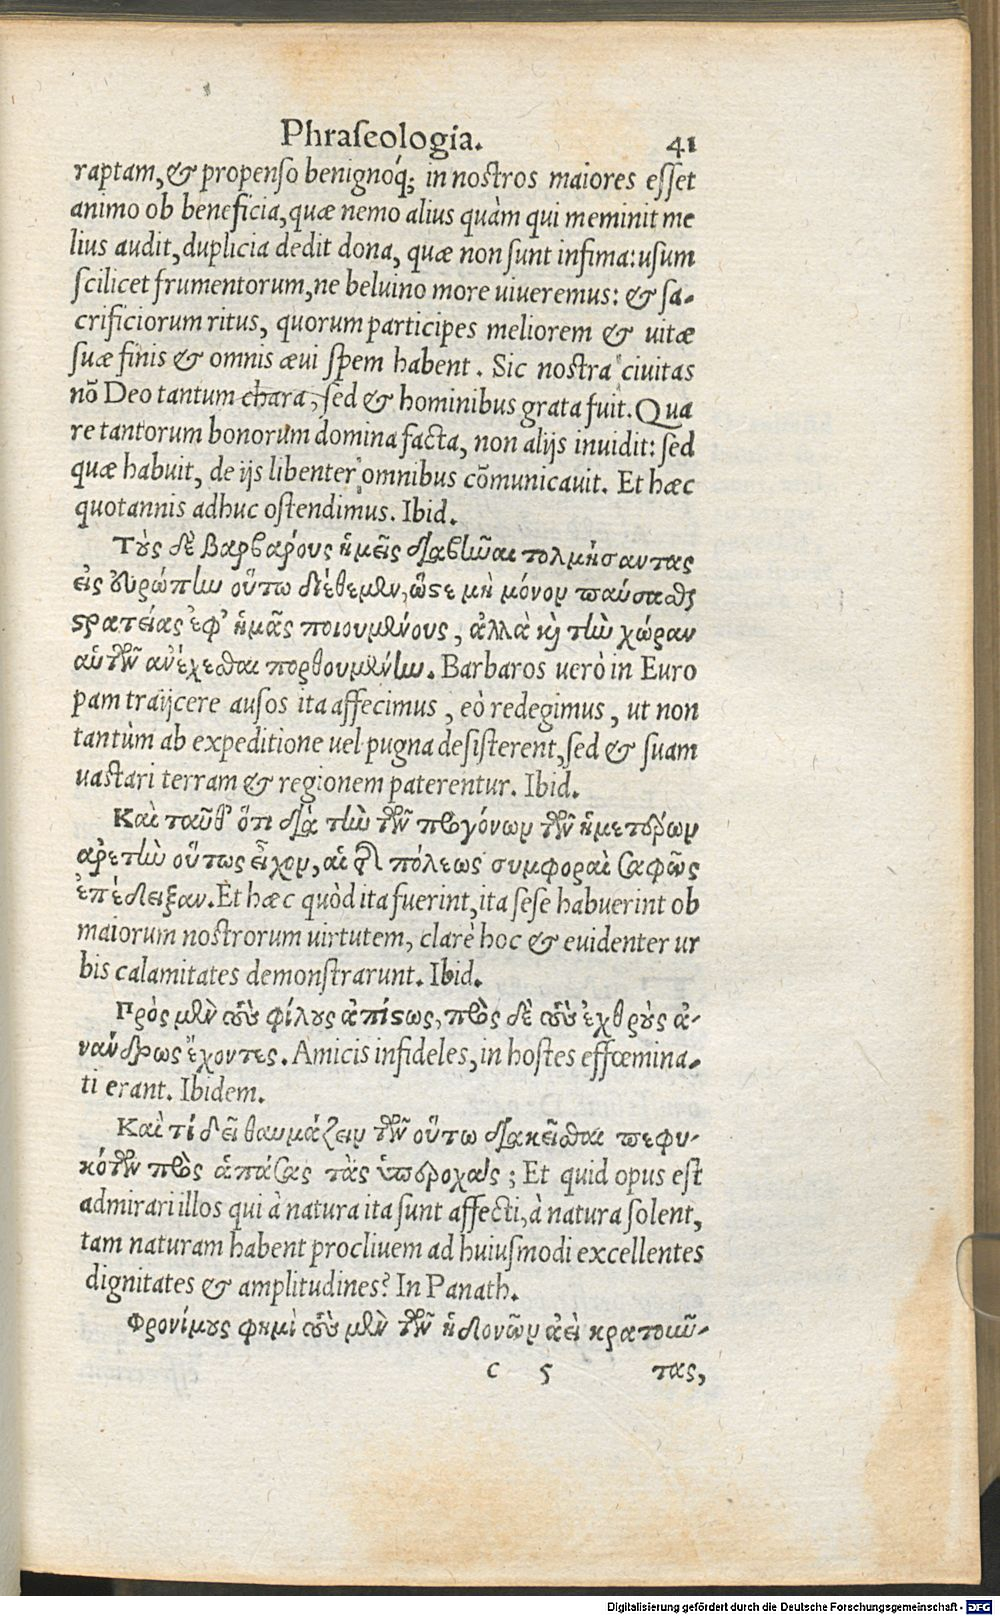 Phraſeologia. 41
raptam, & propenſo benignoq́; in nostros maiores eſſet
animo ob beneficia, quæ nemo alius quàm qui meminit me
lius audit, duplicia dedit dona, quæ non ſunt infima: uſum
ſcilicet frumentorum, ne beluino more uiueremus: & ſa-
crificiorum ritus, quorum participes meliorem & uitæ
ſuæ finis & omnis æui ſpem habent. Sic nostra ciuitas
nõ Deo tantum chara, ſed & hominibus grata fuit. Qua
re tantorum bonorum domina facta, non alijs inuidit: ſed
quæ habuit, de ijs libenter omnibus cõmunicauit. Et hæc
quotannis adhuc oſtendimus. Ibid.
Τοὺς δὲ βαρβάρους ἡμεῖς διαβῶαι τολμήσαντας
εἰς Εὐρώπην οὕτω διέθεμεν, ὥστε μὴ μόνον παύσασθαι
στρατείας ἐφ' ἡμᾶς ποιουμένους, ἀλλὰ καὶ τὴν χώραν
αὑτῶν ἀνέχεσθαι πορθουμένην. Barbaros uerò in Euro
pam traijcere auſos ita affecimus, eò redegimus, ut non
tantùm ab expeditione uel pugna deſiſterent, ſed & ſuam
uastari terram & regionem paterentur. Ibid.
Καὶ ταῦθ' ὅτι διὰ τὴν τῶν προγόνων τῶν ἡμετέρων
ἀρετὴν οὕτως εἶχον, αἱ τῆς πόλεως συμφοραὶ σαφῶς
ἐπέδειξαν. Et hæc quòd ita fuerint, ita ſeſe habuerint ob
maiorum nostrorum uirtutem, clarè hoc & euidenter ur
bis calamitates demonſtrarunt. Ibid.
Πρὸς μὲν τοὺς φίλους ἀπίστως, πρὸς δὲ τοὺς ἐχθροὺς ἀ-
νάνδρως ἔχοντες. Amicis infideles, in hostes effœmina-
ti erant. Ibidem.
Καὶ τί δεῖ θαυμάζειν τῶν οὕτω διακεῖσθαι πεφυ-
κότων πρὸς ἁπάσας τὰς ὑπεροχάς; Et quid opus eſt
admirari illos qui à natura ita ſunt affecti, à natura ſolent,
tam naturam habent procliuem ad huiuſmodi excellentes
dignitates & amplitudines? In Panath.
Φρονίμους φημὶ τοὺς μὲν τῶν ἡδονῶν ἀεὶ κρατοῦν-
c 5 τας,
Digitalisierung gefördert durch die Deutsche Forschungsgemeinschaft - DFG